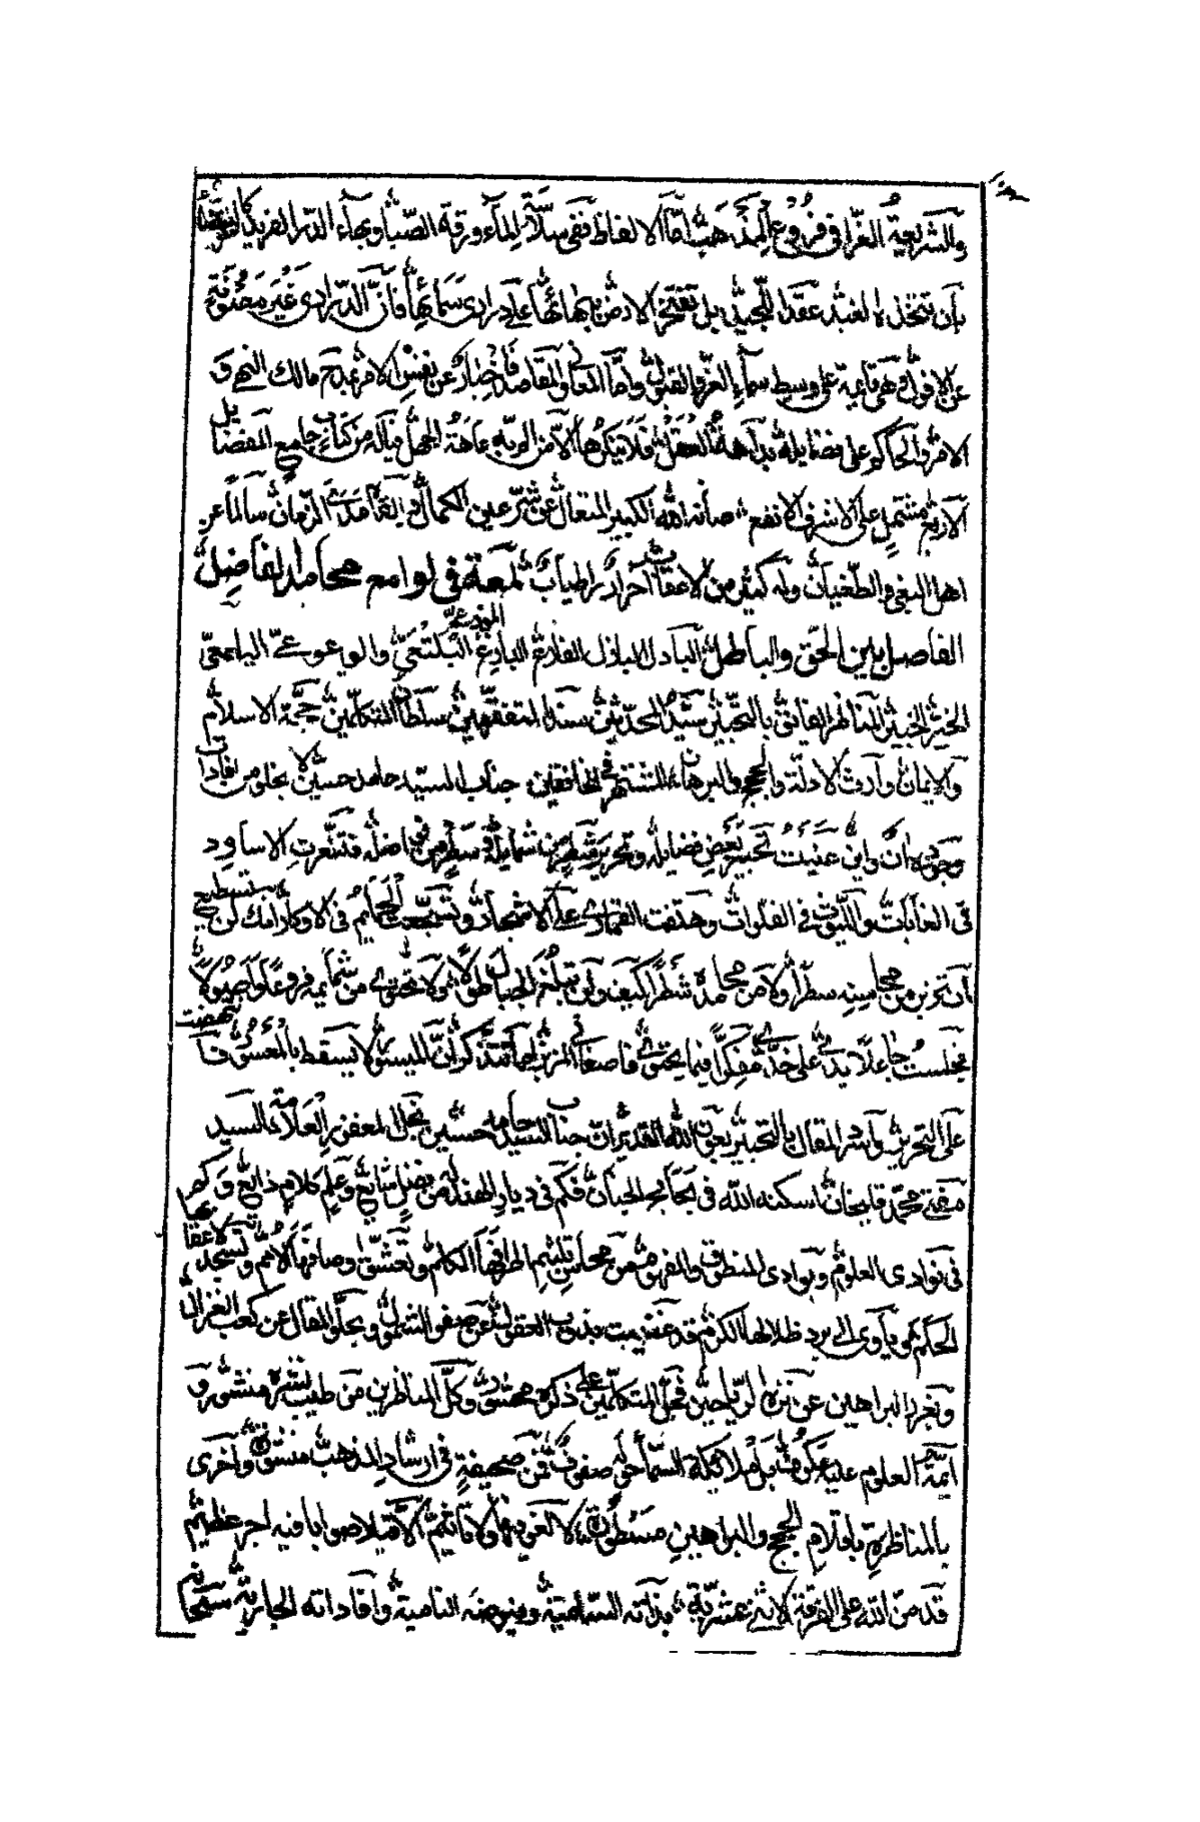 والشريعة الغرا في فروع المذهب اما الالفاظ ففي سلاسة الماء ورقة الصبا وبهاء الدر الفريد
بان تتخذه الغيد عقد الجيد بل تفتخر الارض ببهائها على دراري سمائها فان الدراري غير مصونة
عن الافول وهي قايمة على وسط سماء العز والقبول واما المعاني والمقاصد فاخبار عن نفس الامر بمدح مالك النهي و
الامر والحاكم على فضايله بداهة العقل فلا ينكرها الا من به عاهة الجهل فياله من كتاب جامع الفضايل
الاربع مشتمل على الاشرف الانفع صانه الله الكبير المتعال عن شر عين الكمال والقاه مدى الزمان سالما عن
اهل البغي والطغيان وله كثير من الاعقاب احرار اطياب لمعة في لوامع محامد الفاضل
الفاصل بين الحق والباطل البادل الباذل البارع البلتعي واللوذعي اليلمعي
الخير الخبير المناظر الفايق بالتحبير سيد المحدثين سند المتفقهين سلطان المتكلمين حجة الاسلام
والايمان وارث الادلة والحجج والبرهان المشتهر في الخافقين جناب السيد حامد حسين لا يخلو من افادات
وجوده اني وان عنيت تحبير بعض فضايله وتحرير شطر من شمايله وسطر من فواضله فتنعرت الاساود
في الغابات والليوث في الفلوات وهتفت القماري على الاشجار وتسجعت الحمايم في الاوكار انك لن تستطيع
ان تزبر من محاسنه سطرا ولا من محامده شطرا كيف ولن تبلغ الجبال طولا ولا تحتوي من شمايمه فروعا واصولا
فجلست جاعلا يدي على خدي مفكرا فيما يختفي فاصغاني المزبر لما تتذكر ان الميسور لا يسقط بالمعسور فنهضت
على التحرير وابتدر المقال بالتحبير بعون الله القدير ان جناب السيد حامد حسين نجل المغفور العلامة السيد
مفتي محمد قليخان اسكنه الله في بحابح الجنان فكم في ديار الهند له من فضل شايع وعلم كلام ذايع وكم
في نوادي العلوم وبوادي المنطوق والمفهوم من محاسن تلثم اطرافها الكمام وتعشق اوصافها الامم وتسجد لاعقابها
الحكم وياوي الى برد ظلالها الكرم قد عذبت بذوب العقول عن صفو الشمول وبحلو المقال عن كعب الغزال
وبغرر البراهين عن نثره الرياحين فحل المتكلمين على ذكره محتو وكل المناظرين من طيب نشره منتشو و
ايمة العلوم عليه عكوف بل ملائكة السماء حوله صفوف فمن صحيفة في ارشاد المذهب منشورة واخرى
بالمناظرة باقلام الحجج والبراهين مسطورة لا لغو فيها ولا تاثيم الا قيلا صوابا فيه اجر عظيم
قد من الله على الفرقة الاثني عشرية بذاته السامية وفيوضه النامية وافاداته الجارية سبحان